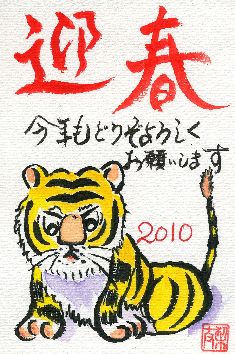 迎春
今年もどうぞよろしく
お願いします
2010